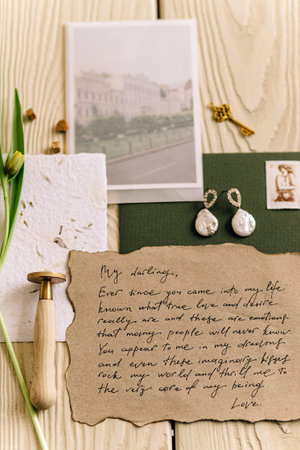 My darling,
Ever since you came into my life
known what true love and desire
really are and these are emotions
that many people will never know.
You appear to me in my dreams
and even these imaginary kisses
rock my world and thrill me to
the very core of my being.
Love.